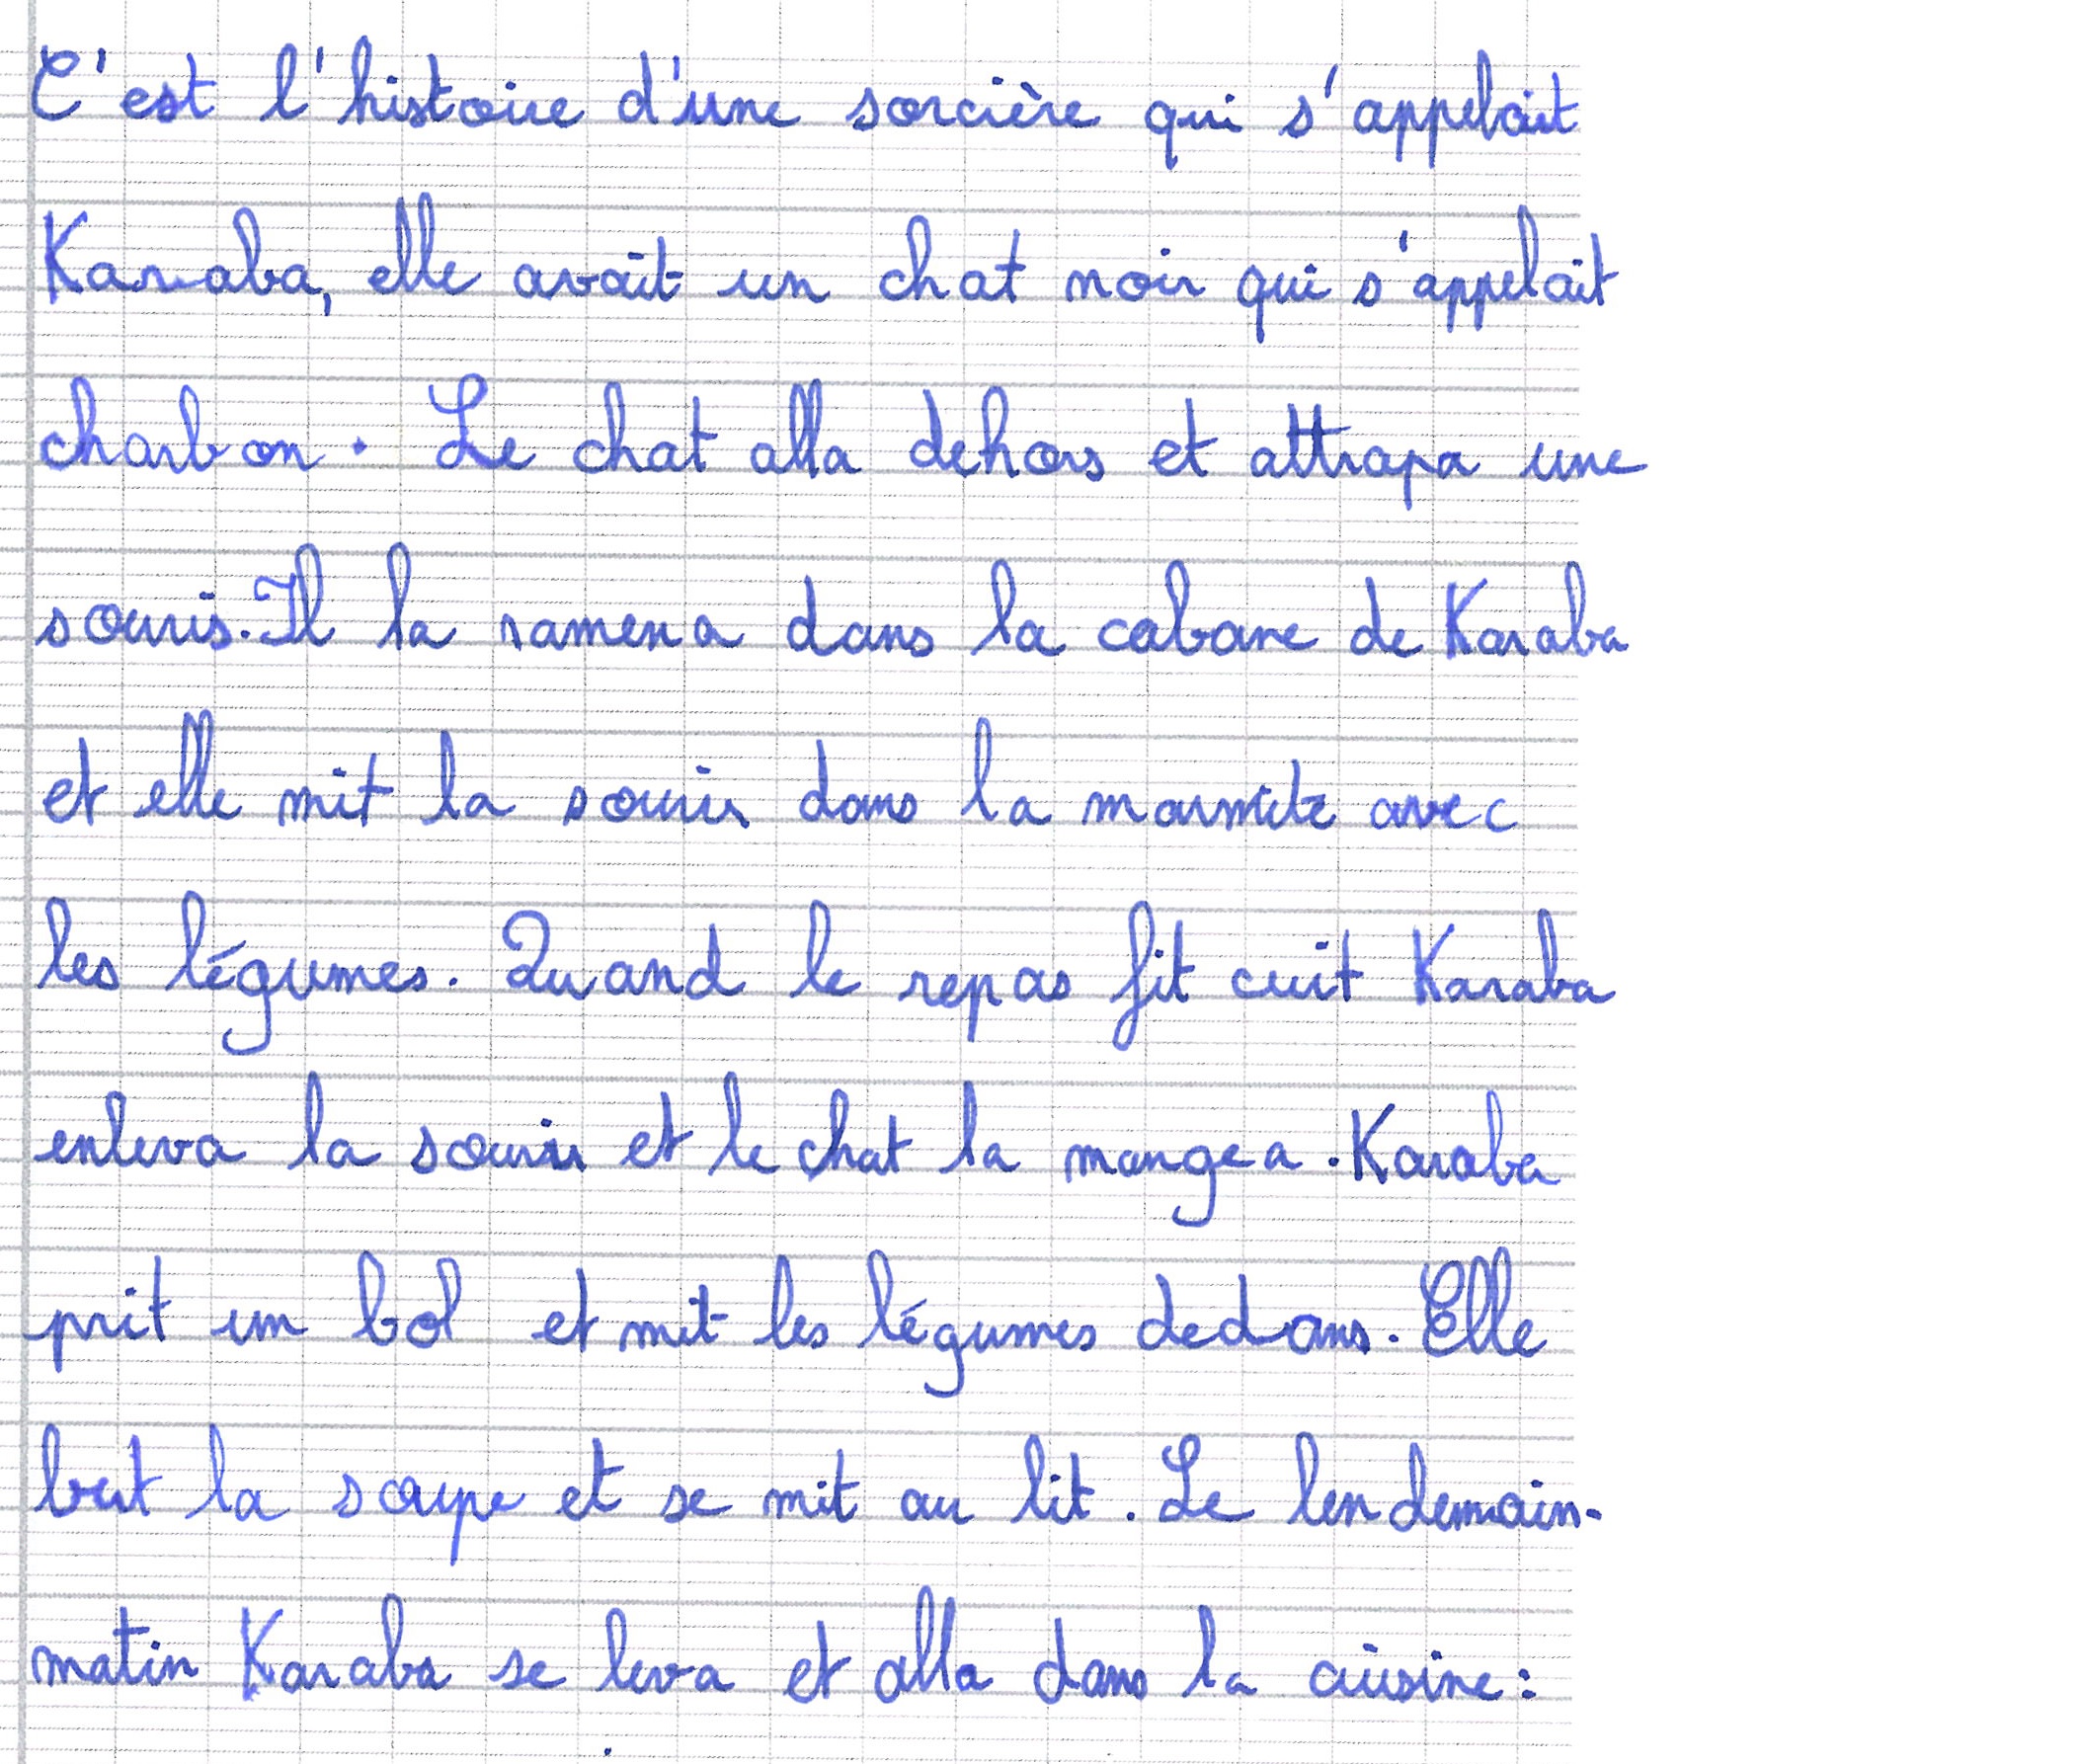 C'est l'histoire d'une sorcière qui s'appelait
Karaba, elle avait un chat noir qui s'appelait
charbon. Le chat alla dehors et attrapa une
souris. Il la ramena dans la cabane de Karaba
et elle mit la souris dans la marmite avec
les légumes. Quand le repas fit cuit Karaba
enleva la souris et le chat la mangea. Karaba
prit un bol et mit les légumes dedans. Elle
but la soupe et se mit au lit. Le lendemain-
matin Karaba se leva et alla dans la cuisine: